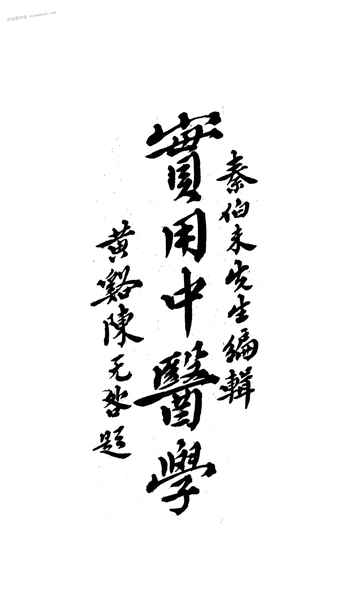 秦伯未先生編輯
實用中醫學
黄谿陳无咎題